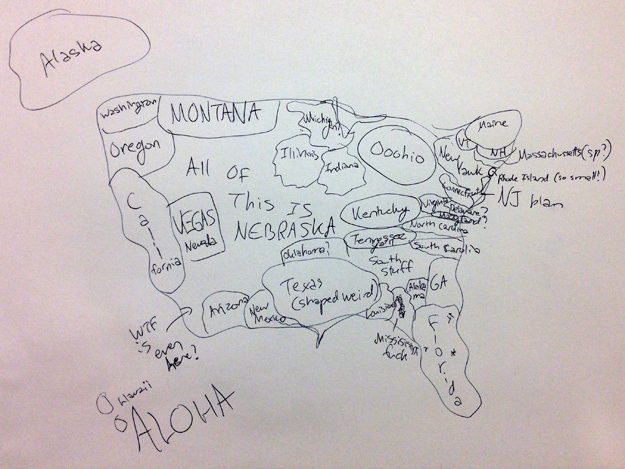 Alaska
Washington
MONTANA
Oregon
Michigan?
Illinois
Indiana
Oohio
Maine
VT
NH
New
Yawk
Massachusetts (sp?)
Rhode Island (so small!)
Connecticut
NJ blam
All Of
This IS
NEBRASKA
Cali
fornia
VEGAS
Nevada
Kentucky
Virginia
Delaware?
Maryland?
North Carolina
Tennessee
South Carolina
Oklahoma?
South
Stuff
Texas
(shaped weird)
Arizona
New
Mexico
Louisiana
Alaba
ma
GA
Mississippi
fuck
Florida
WTF
is
even
here?
Hawaii
ALOHA